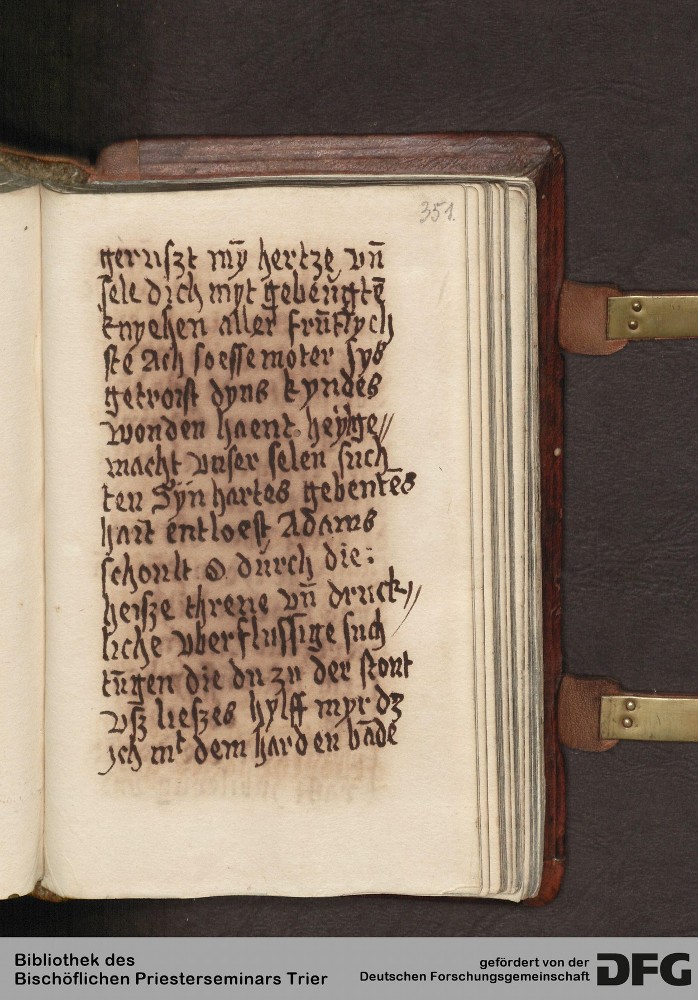 351.
geruſzt mȳ hertze vn̄
ſele dich myt gebeu̇gtē
knyehen aller frūtlych
ſte Ach ſoeſſe moter ſys
getroiſt dyns kyndes
wonden haent heylge//
macht vnſer ſelen ſuch
ten Syn hartes gebentēs
hait entloeſt Adams
ſchoult O. durch die:
heiſze threne vn̄ druck//
liche vberfluſſige ſuch
tūgen die du zu der ſtont
vſz lieſzes hylff myr dz
ich mt dem harden bāde
Bibliothek des
Bischöflichen Priesterseminars Trier
gefördert von der
Deutschen Forschungsgemeinschaft
DFG